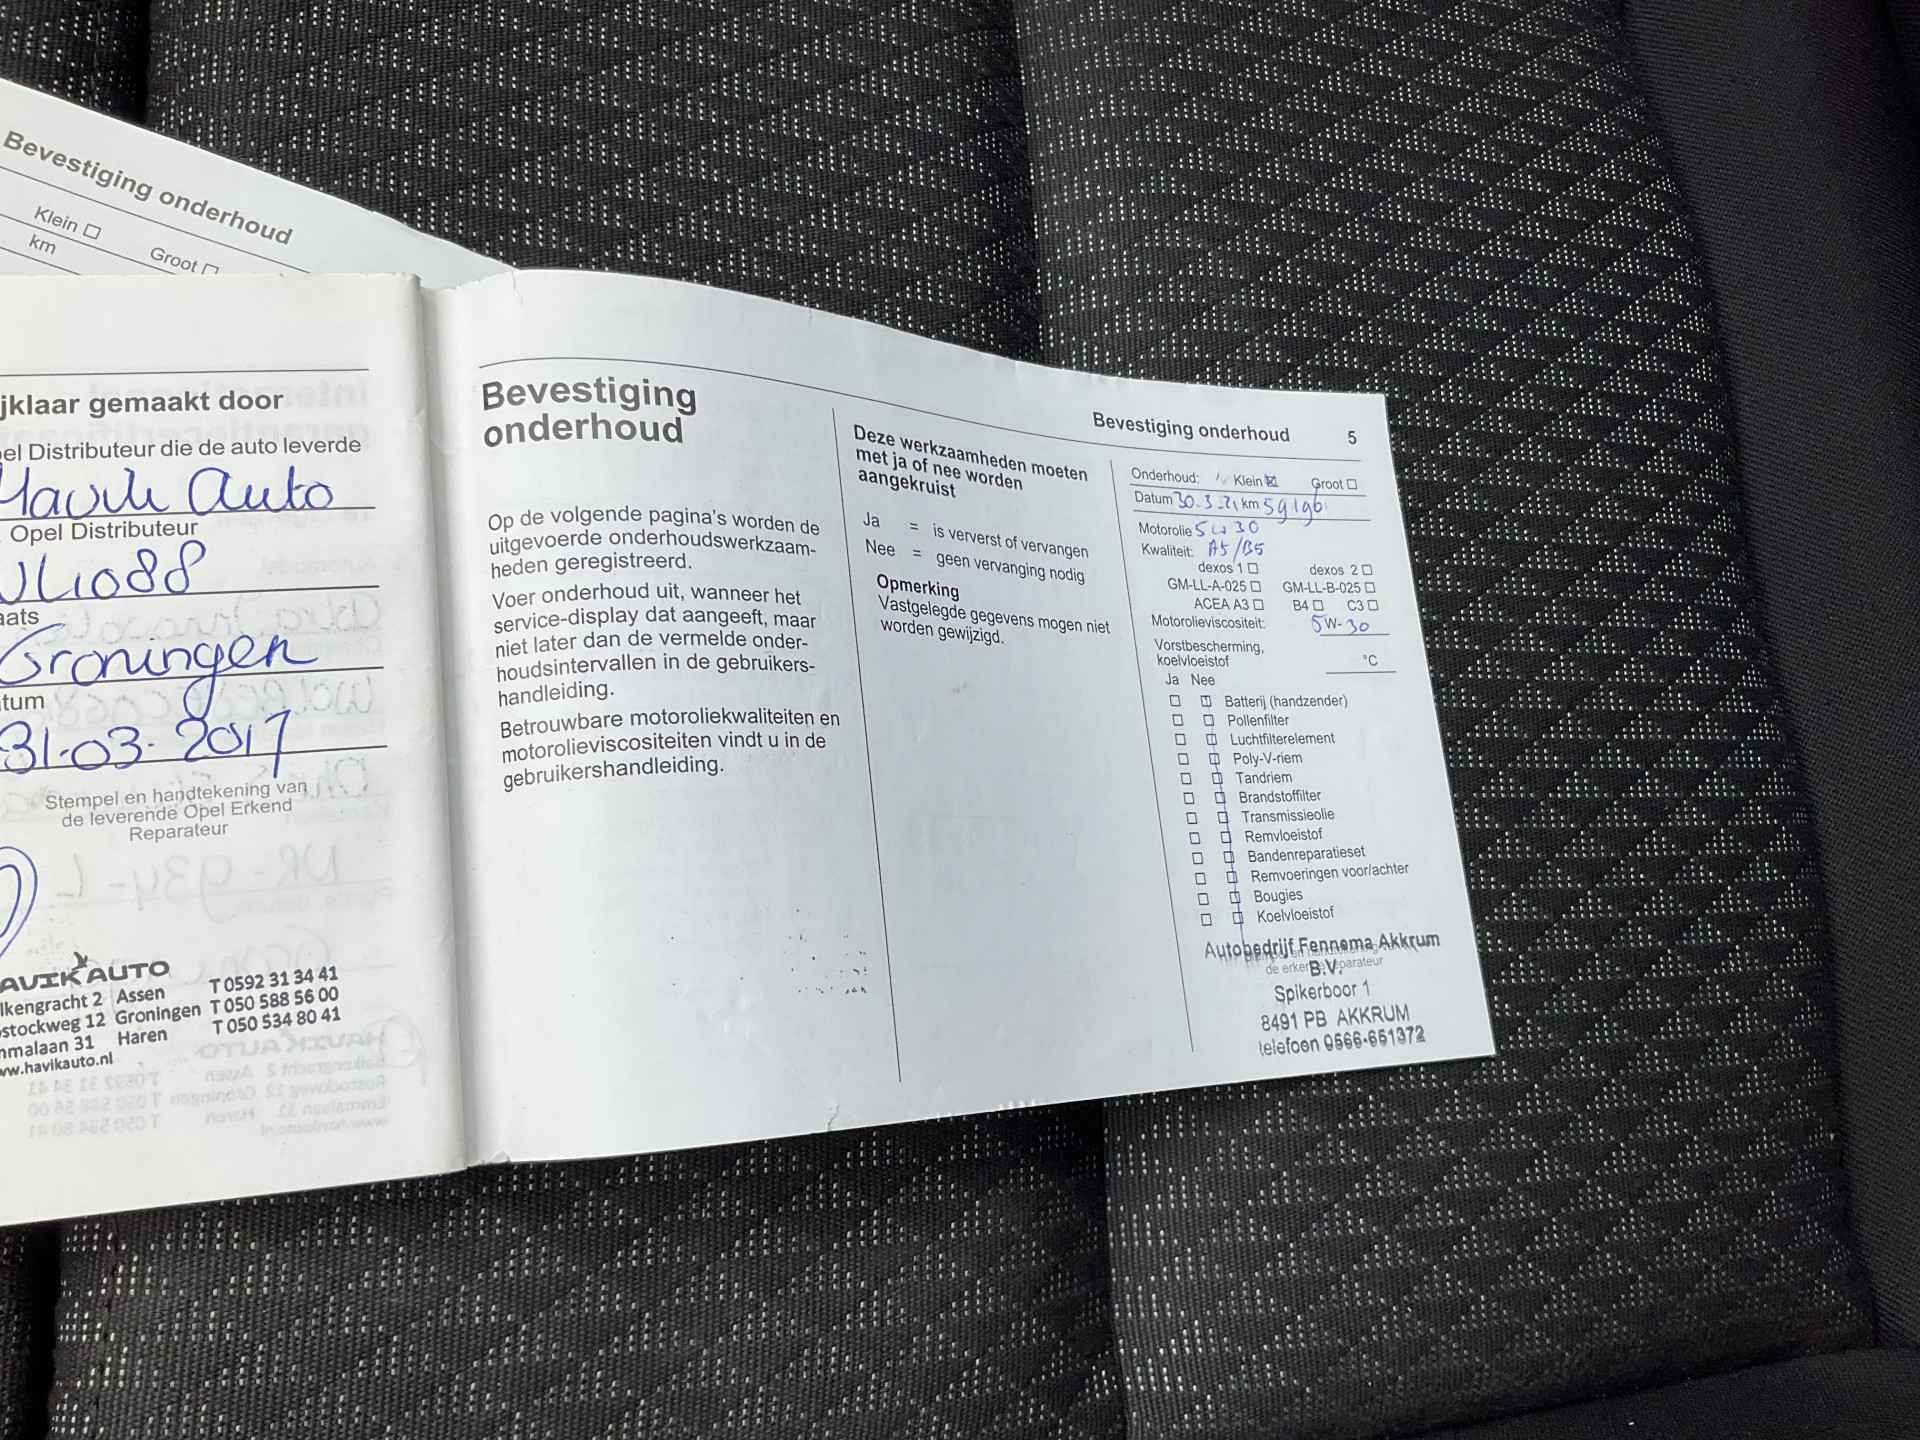 Bevestiging onderhoud
Klein
km
Groot
jklaar gemaakt door
el Distributeur die de auto leverde
Havik Auto
Opel Distributeur
NL1088
aats
Groningen
tum
31-03-2017
Stempel en handtekening van
de leverende Opel Erkend
Reparateur
AVIK AUTO
lkengracht 2 Assen T 0592 31 34 41
stockweg 12 Groningen T 050 588 56 00
mmalaan 31 Haren T 050 534 80 41
ww.havikauto.nl
Bevestiging
onderhoud
Op de volgende pagina's worden de
uitgevoerde onderhoudswerkzaam-
heden geregistreerd.
Voer onderhoud uit, wanneer het
service-display dat aangeeft, maar
niet later dan de vermelde onder-
houdsintervallen in de gebruikers-
handleiding.
Betrouwbare motoroliekwaliteiten en
motorolieviscositeiten vindt u in de
gebruikershandleiding.
Deze werkzaamheden moeten
met ja of nee worden
aangekruist
Ja = is ververst of vervangen
Nee = geen vervanging nodig
Opmerking
Vastgelegde gegevens mogen niet
worden gewijzigd.
Bevestiging onderhoud 5
Onderhoud: Klein Groot
Datum 30-3-21 km 59196
Motorolie 5w30
Kwaliteit: A5/B5
dexos 1 dexos 2
GM-LL-A-025 GM-LL-B-025
ACEA A3 B4 C3
Motorolieviscositeit: 5W-30
Vorstbescherming,
koelvloeistof °C
Ja Nee
Batterij (handzender)
Pollenfilter
Luchtfilterelement
Poly-V-riem
Tandriem
Brandstoffilter
Transmissieolie
Remvloeistof
Bandenreparatieset
Remvoeringen voor/achter
Bougies
Koelvloeistof
Autobedrijf Fennema Akkrum
B.V.
Spikerboor 1
8491 PB AKKRUM
telefoon 0566-651372